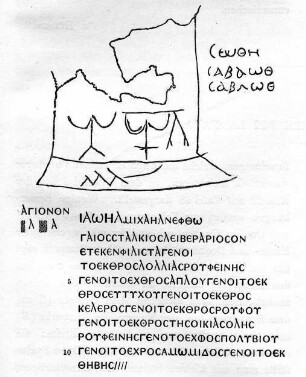 ϹΕΥΘΗ
ϹΑΒΑΩΘ
ϹΑΒΑΩΘ
ΑΓΙΟΝΟΝ
ΙΑΩΗΛΜΙΧΑΗΛΝΕΦΘΩ
ΓΑΙΟϹϹΤΑΛΚΙΟϹΛΕΙΒΕΡΑΡΙΟϹΟΝ
ΕΤΕΚΕΝΦΙΛΙϹΤΑΓΕΝΟΙ
ΤΟΕΚΘΡΟϹΛΟΛΛΙΑϹΡΟΥΦΕΙΝΗϹ
5 ΓΕΝΟΙΤΟΕΧΘΡΟϹΑΠΛΟΥΓΕΝΟΙΤΟΕΚ
ΘΡΟϹΕΥΤΥΧΟΥΓΕΝΟΙΤΟΕΚΘΡΟϹ
ΚΕΛΕΡΟϹΓΕΝΟΙΤΟΕΚΘΡΟϹΡΟΥΦΟΥ
ΓΕΝΟΙΤΟΕΧΘΡΟϹΤΗϹΟΙΚΙΑϹΟΛΗϹ
ΡΟΥΦΕΙΝΗϹΓΕΝΟΙΤΟΕΧΦΟϹΠΟΛΥΒΙΟΥ
10 ΓΕΝΟΙΤΟΕΧΡΟϹΑΜΩΜΙΔΟϹΓΕΝΟΙΤΟΕΚ
ΘΗΒΗϹ////